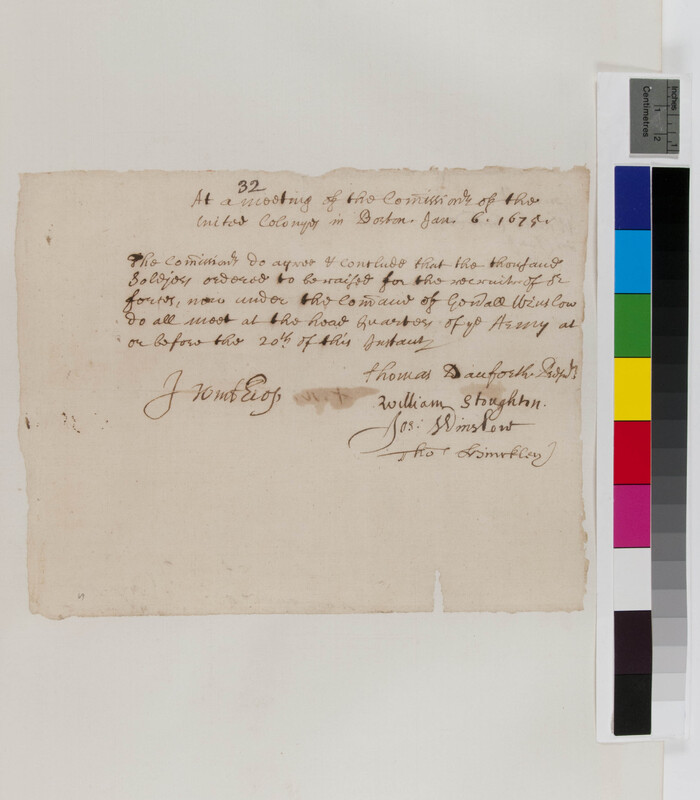 32
At a meeting of the Comission.rs of the
united Colonyes in Boston. Jan. 6. 1675.
The Comission.rs do agree & conclude that the thousand
Soldjers ordered to be raised for the recruite of ye
forces, now under the Comand of Gen.all Winslow
do all meet at the head Quarters of ye Army at
or before the 20th of this Instant
Thomas Danforth Presd.t
J Winthrop
William Stoughton.
Jos: Winslow
Tho: Hinckley
Inches
1
Centimetres
1 2